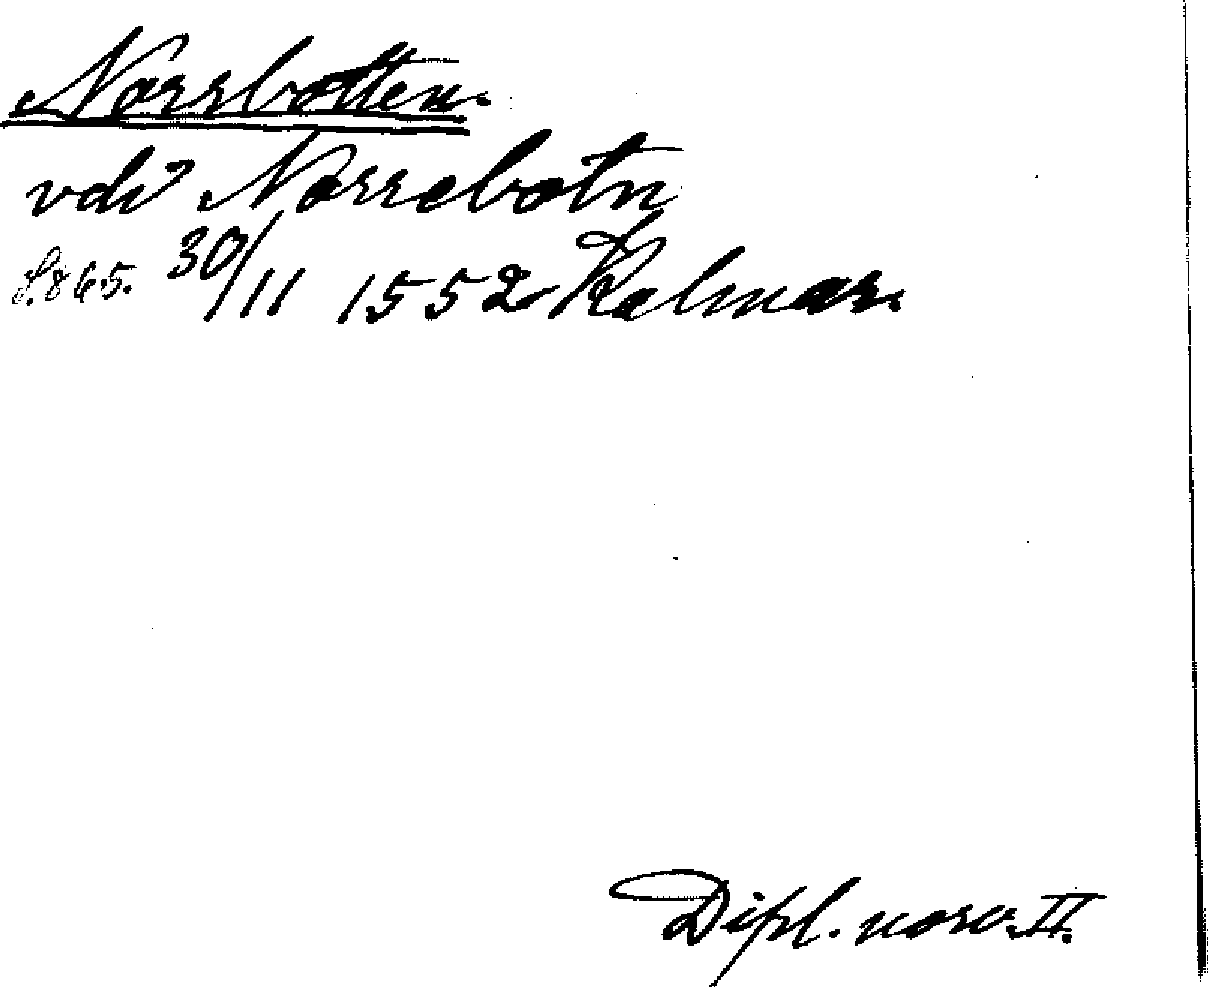 Norrbotten.
vdi Norrebotn
S. 865. 30/11 1552 Kalmar.
Dipl. norv. II.